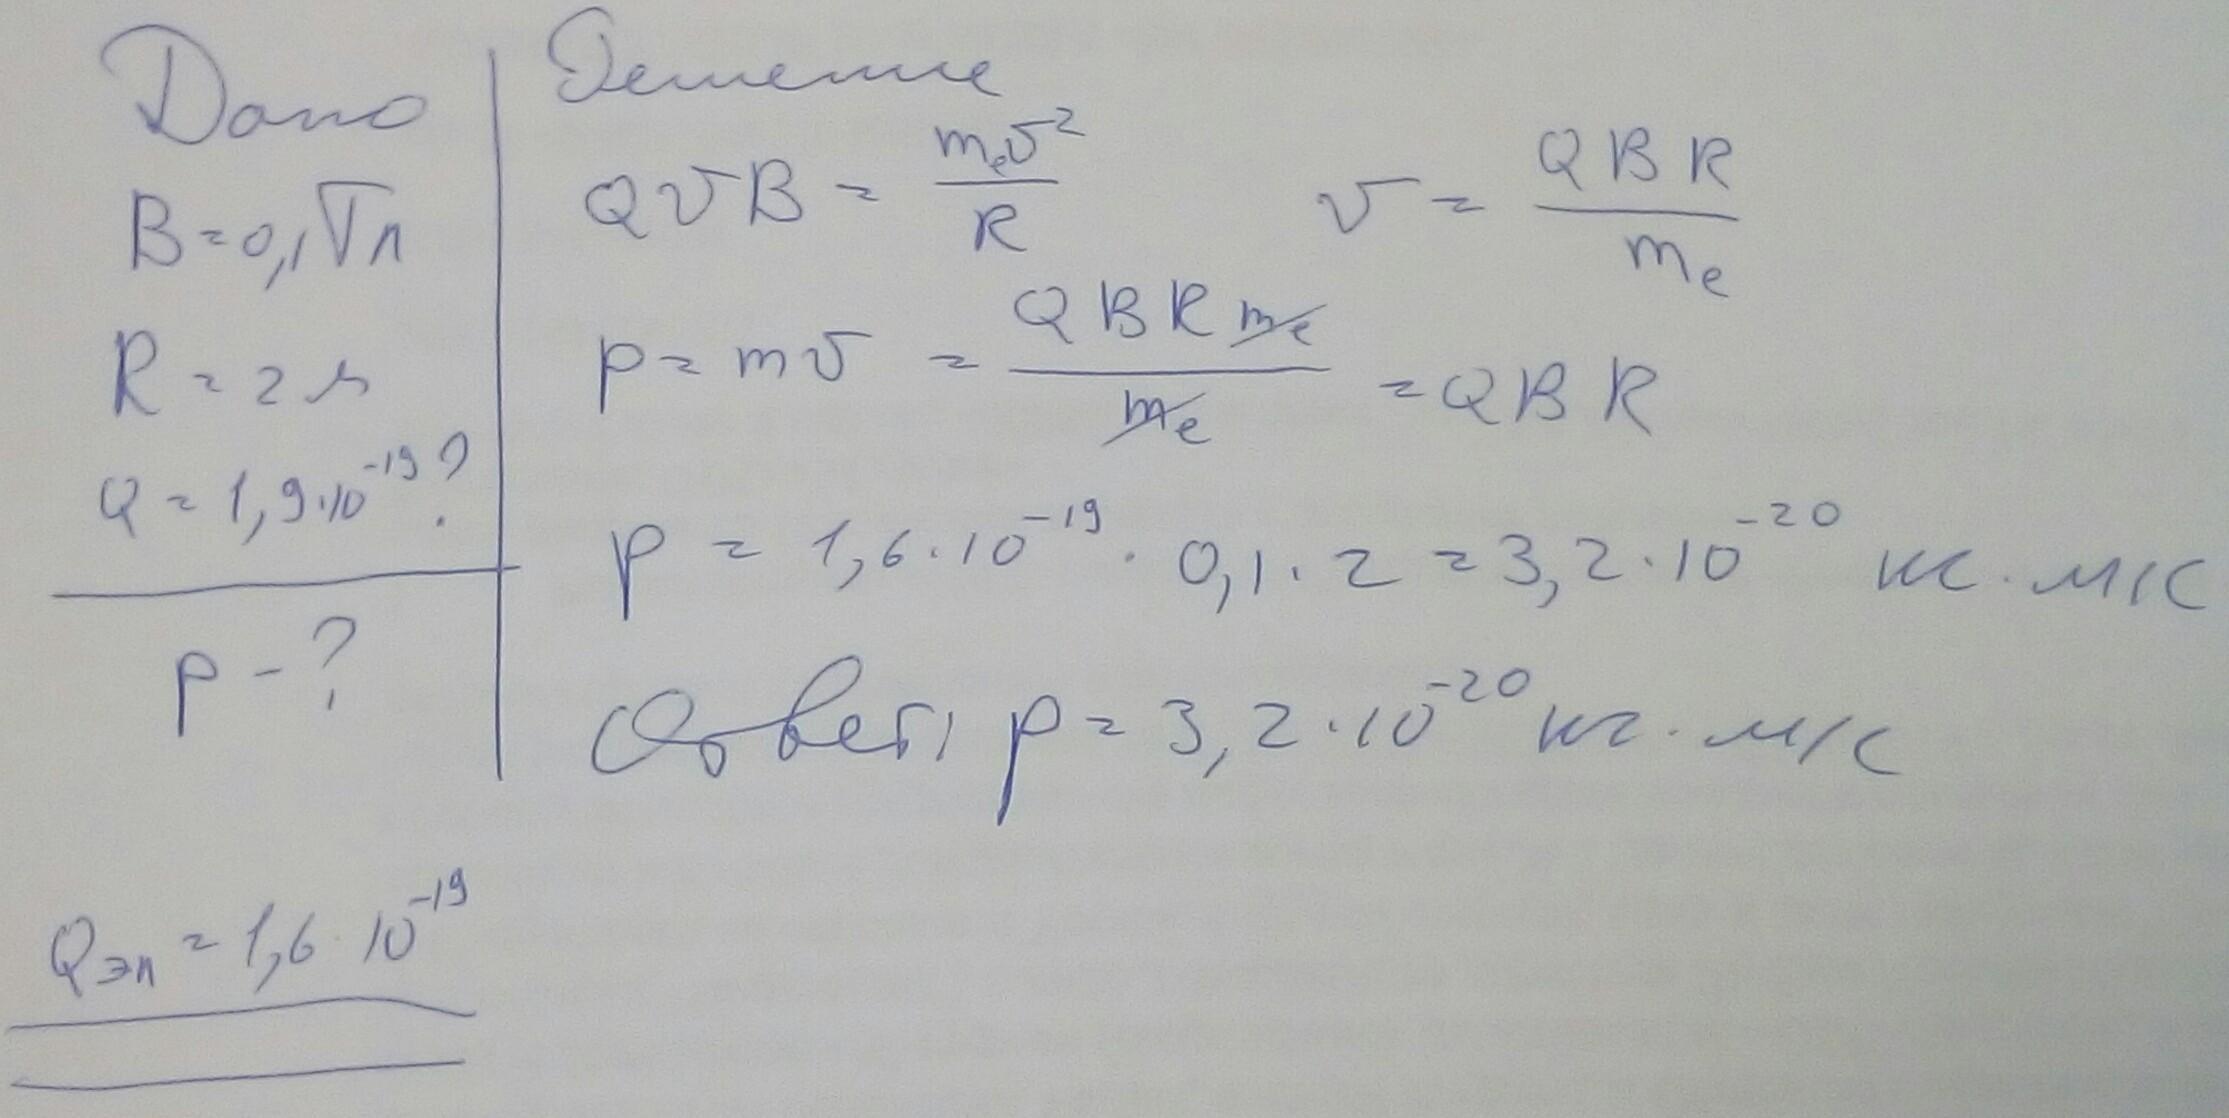 Дано
B = 0,1 Тл
R = 2 м
Q = 1,9·10⁻¹⁹ ?
p - ?
Решение
QvB = mₑv²/R   v = QBR/mₑ
p = mv = QBRmₑ/mₑ = QBR
p = 1,6·10⁻¹⁹ · 0,1 · 2 = 3,2·10⁻²⁰ кг·м/с
Ответ: p = 3,2·10⁻²⁰ кг·м/с
Qэл = 1,6·10⁻¹⁹